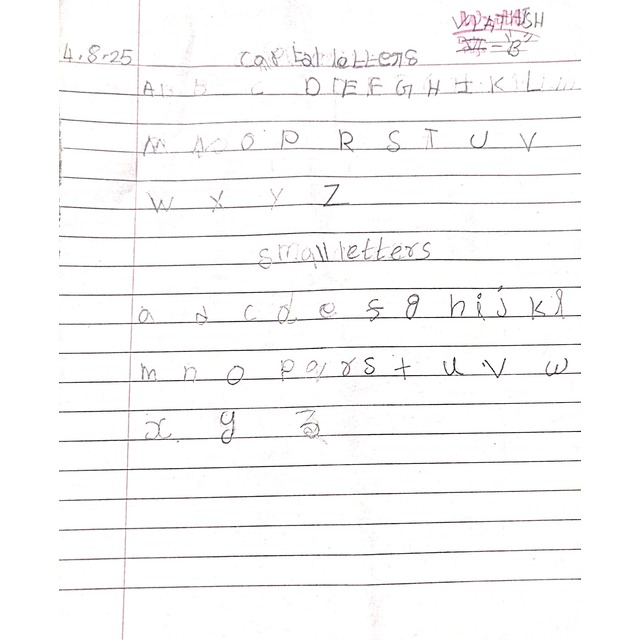 4.8.25
capital letters
A b c D E F G H I K L m
M N O P R S T U V
W X Y Z
small letters
a d c d e f g h i j k l
m n o p q r s t u v w
x y z